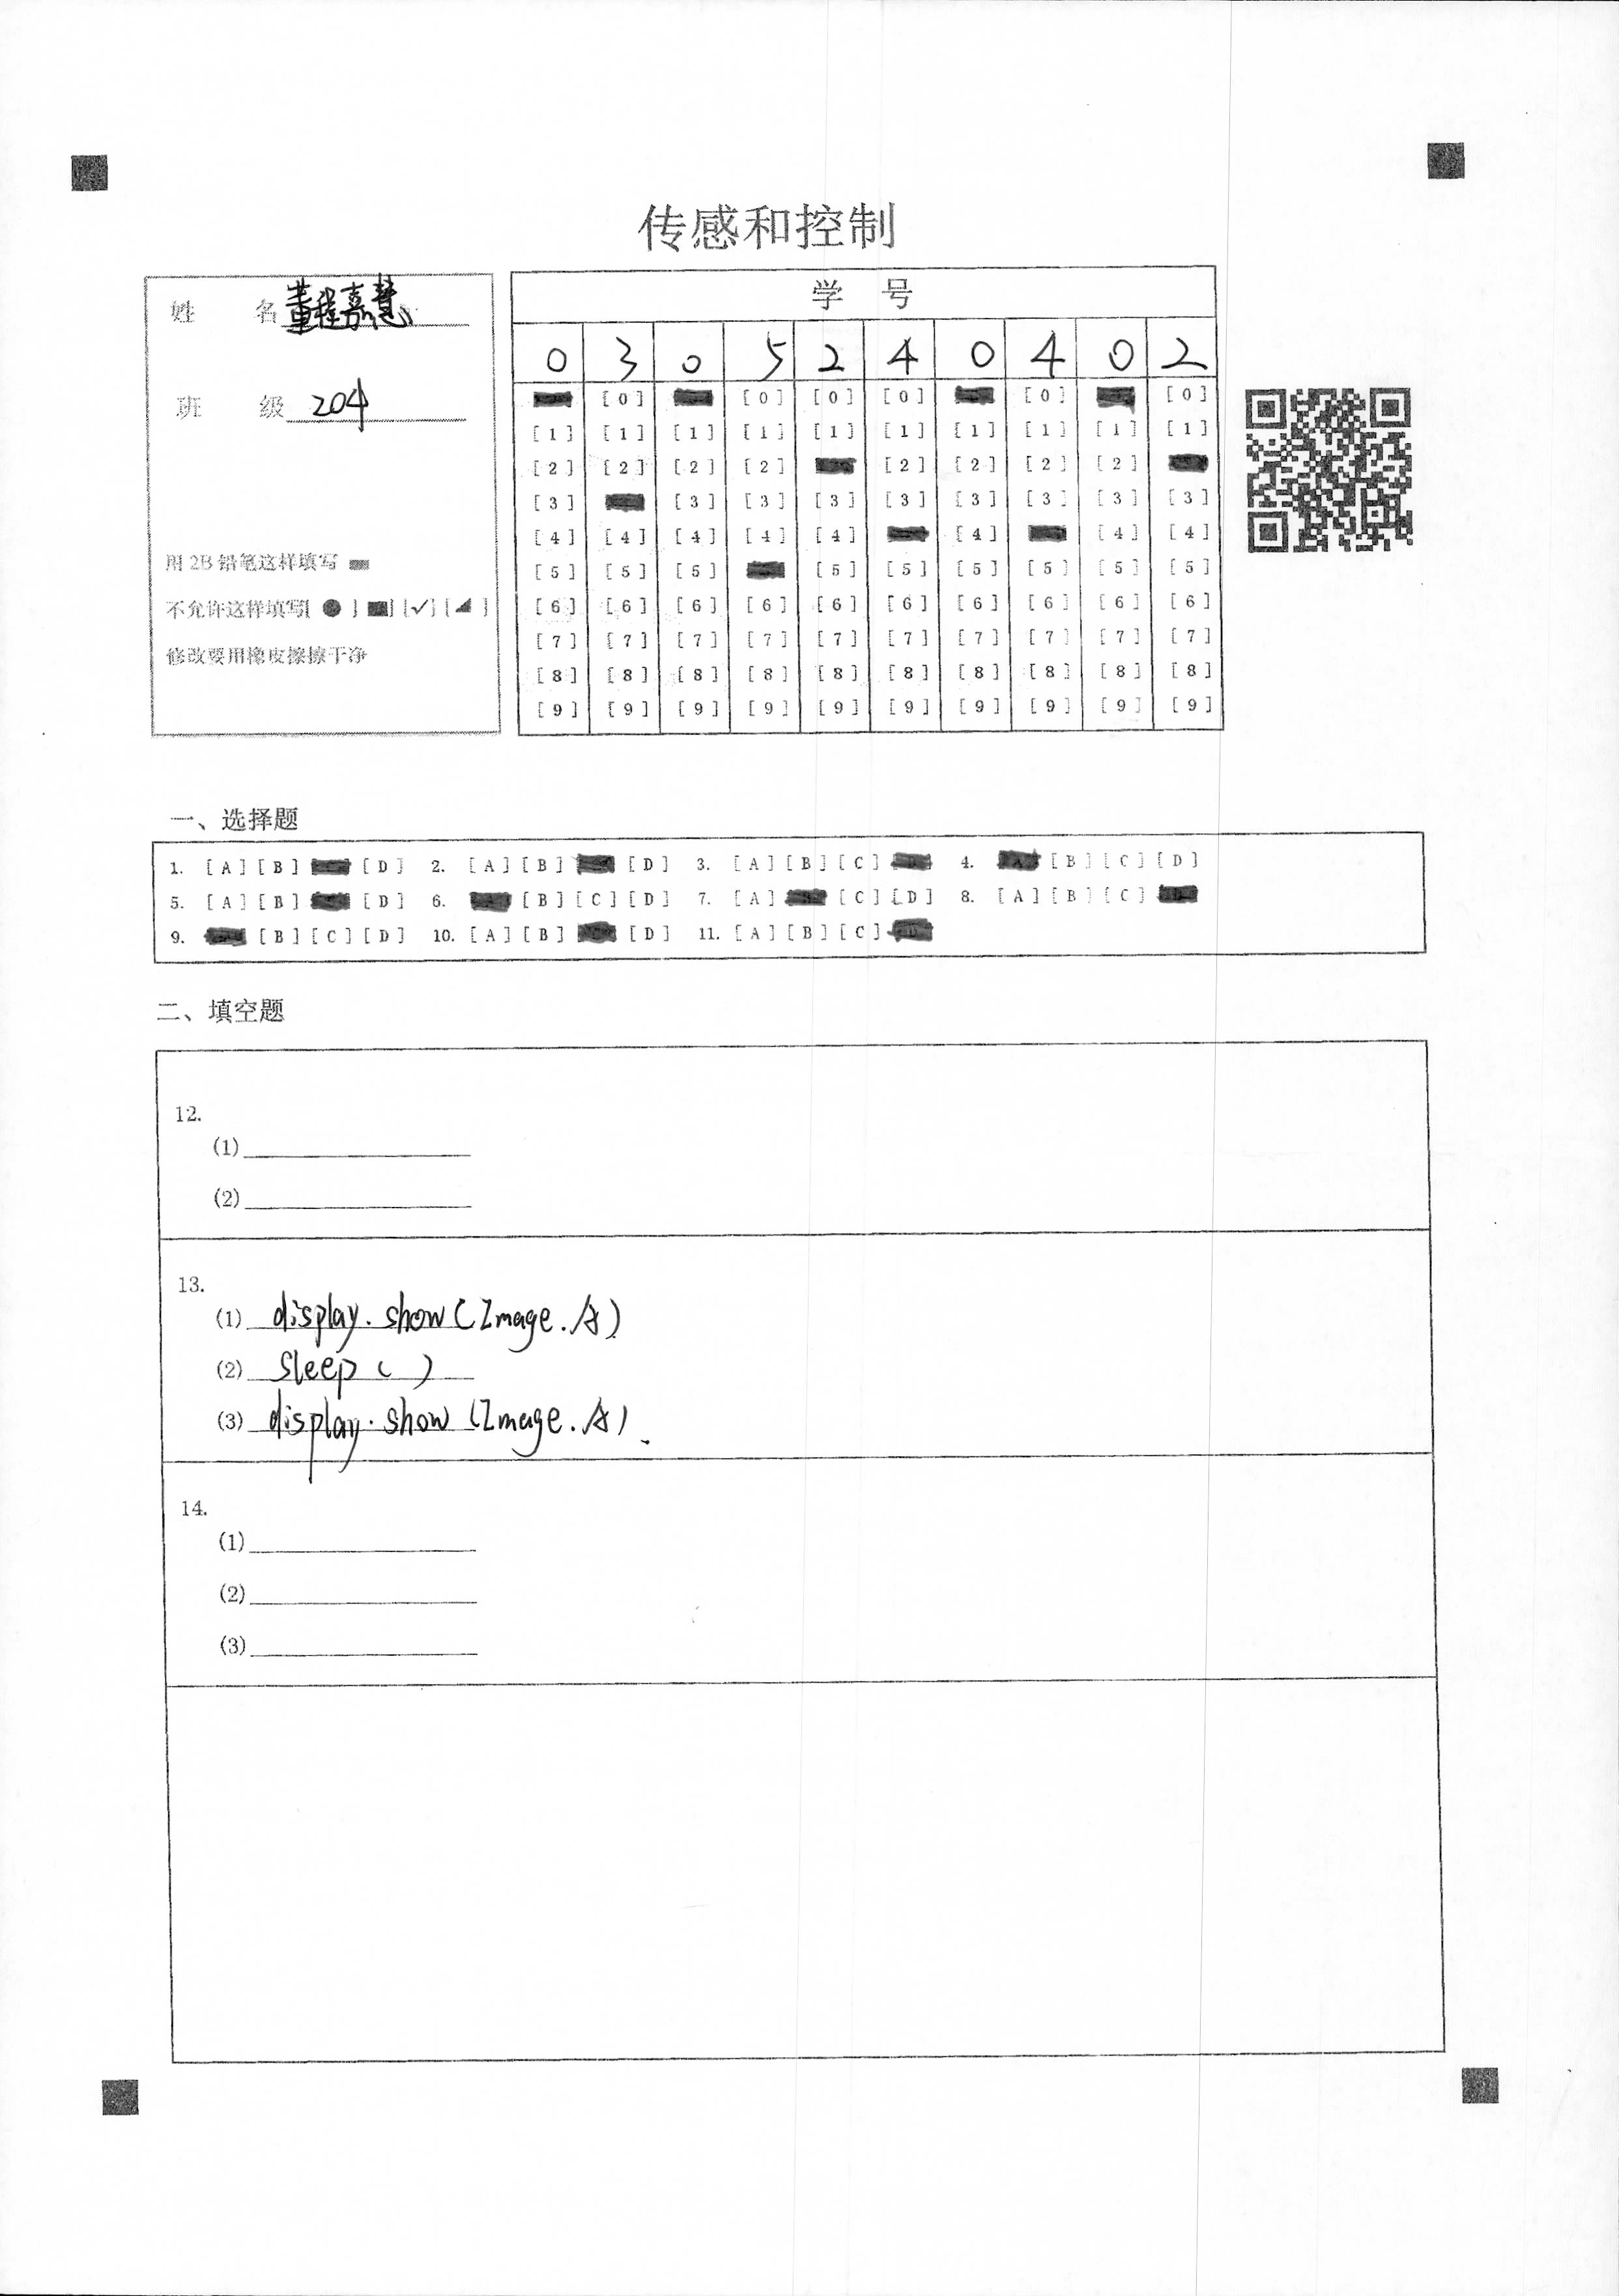 传感和控制
姓 名 董程嘉慧
班 级 204
用 2B 铅笔这样填写
不允许这样填写[ ● ] [■] [✓] [◢ ]
修改要用橡皮擦擦干净
学 号
0 3 0 5 2 4 0 4 0 2
[0] [0] [0] [0] [0] [0]
[1] [1] [1] [1] [1] [1] [1] [1] [1] [1]
[2] [2] [2] [2] [2] [2] [2] [2]
[3] [3] [3] [3] [3] [3] [3] [3] [3]
[4] [4] [4] [4] [4] [4] [4] [4]
[5] [5] [5] [5] [5] [5] [5] [5] [5]
[6] [6] [6] [6] [6] [6] [6] [6] [6] [6]
[7] [7] [7] [7] [7] [7] [7] [7] [7] [7]
[8] [8] [8] [8] [8] [8] [8] [8] [8] [8]
[9] [9] [9] [9] [9] [9] [9] [9] [9] [9]
一、选择题
1. [A] [B] [D] 2. [A] [B] [D] 3. [A] [B] [C] 4. [B] [C] [D]
5. [A] [B] [D] 6. [B] [C] [D] 7. [A] [C] [D] 8. [A] [B] [C]
9. [B] [C] [D] 10. [A] [B] [D] 11. [A] [B] [C]
二、填空题
12.
(1)
(2)
13.
(1) display.show(Image.A)
(2) sleep( )
(3) display.show(Image.A).
14.
(1)
(2)
(3)